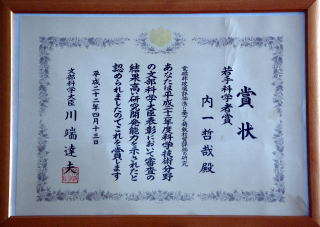 賞状
若手科学者賞
内一哲哉 殿
電磁非破壊評価法に基づく
あなたは平成二十二年度科学技術分野
の文部科学大臣表彰において審査の
結果高い研究開発能力を示されたと
認められましたのでこれを賞します
平成二十二年四月十三日
文部科学大臣 川端達夫